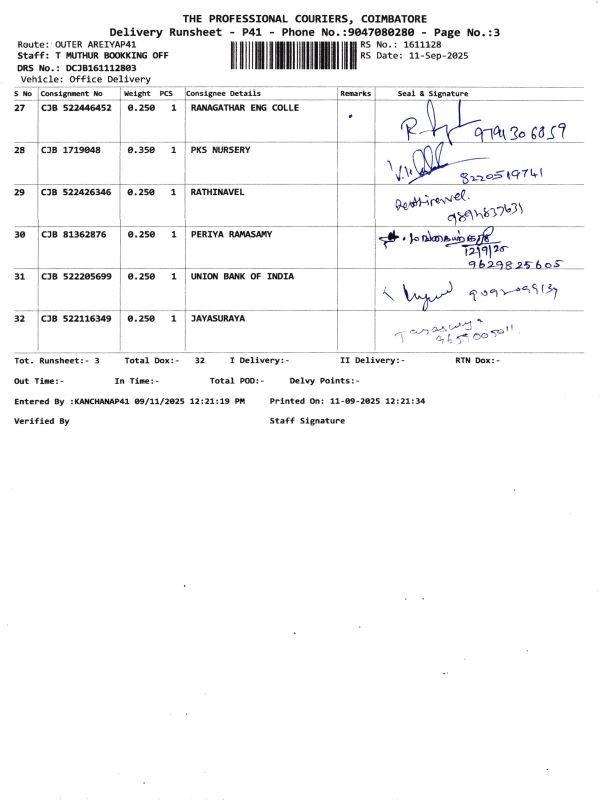 THE PROFESSIONAL COURIERS, COIMBATORE
Delivery Runsheet - P41 - Phone No.:9047080280 - Page No.:3
Route: OUTER AREIYAP41 RS No.: 1611128
Staff: T MUTHUR BOOKKING OFF RS Date: 11-Sep-2025
DRS No.: DCJB161112803
Vehicle: Office Delivery
S No Consignment No Weight PCS Consignee Details Remarks Seal & Signature
27 CJB 522446452 0.250 1 RANAGATHAR ENG COLLE
9791306859
28 CJB 1719048 0.350 1 PKS NURSERY
8220519741
29 CJB 522426346 0.250 1 RATHINAVEL
30 CJB 81362876 0.250 1 PERIYA RAMASAMY
12/9/25
9629825605
31 CJB 522205699 0.250 1 UNION BANK OF INDIA
32 CJB 522116349 0.250 1 JAYASURAYA
Tot. Runsheet:- 3 Total Dox:- 32 I Delivery:- II Delivery:- RTN Dox:-
Out Time:- In Time:- Total POD:- Delvy Points:-
Entered By :KANCHANAP41 09/11/2025 12:21:19 PM Printed On: 11-09-2025 12:21:34
Verified By Staff Signature